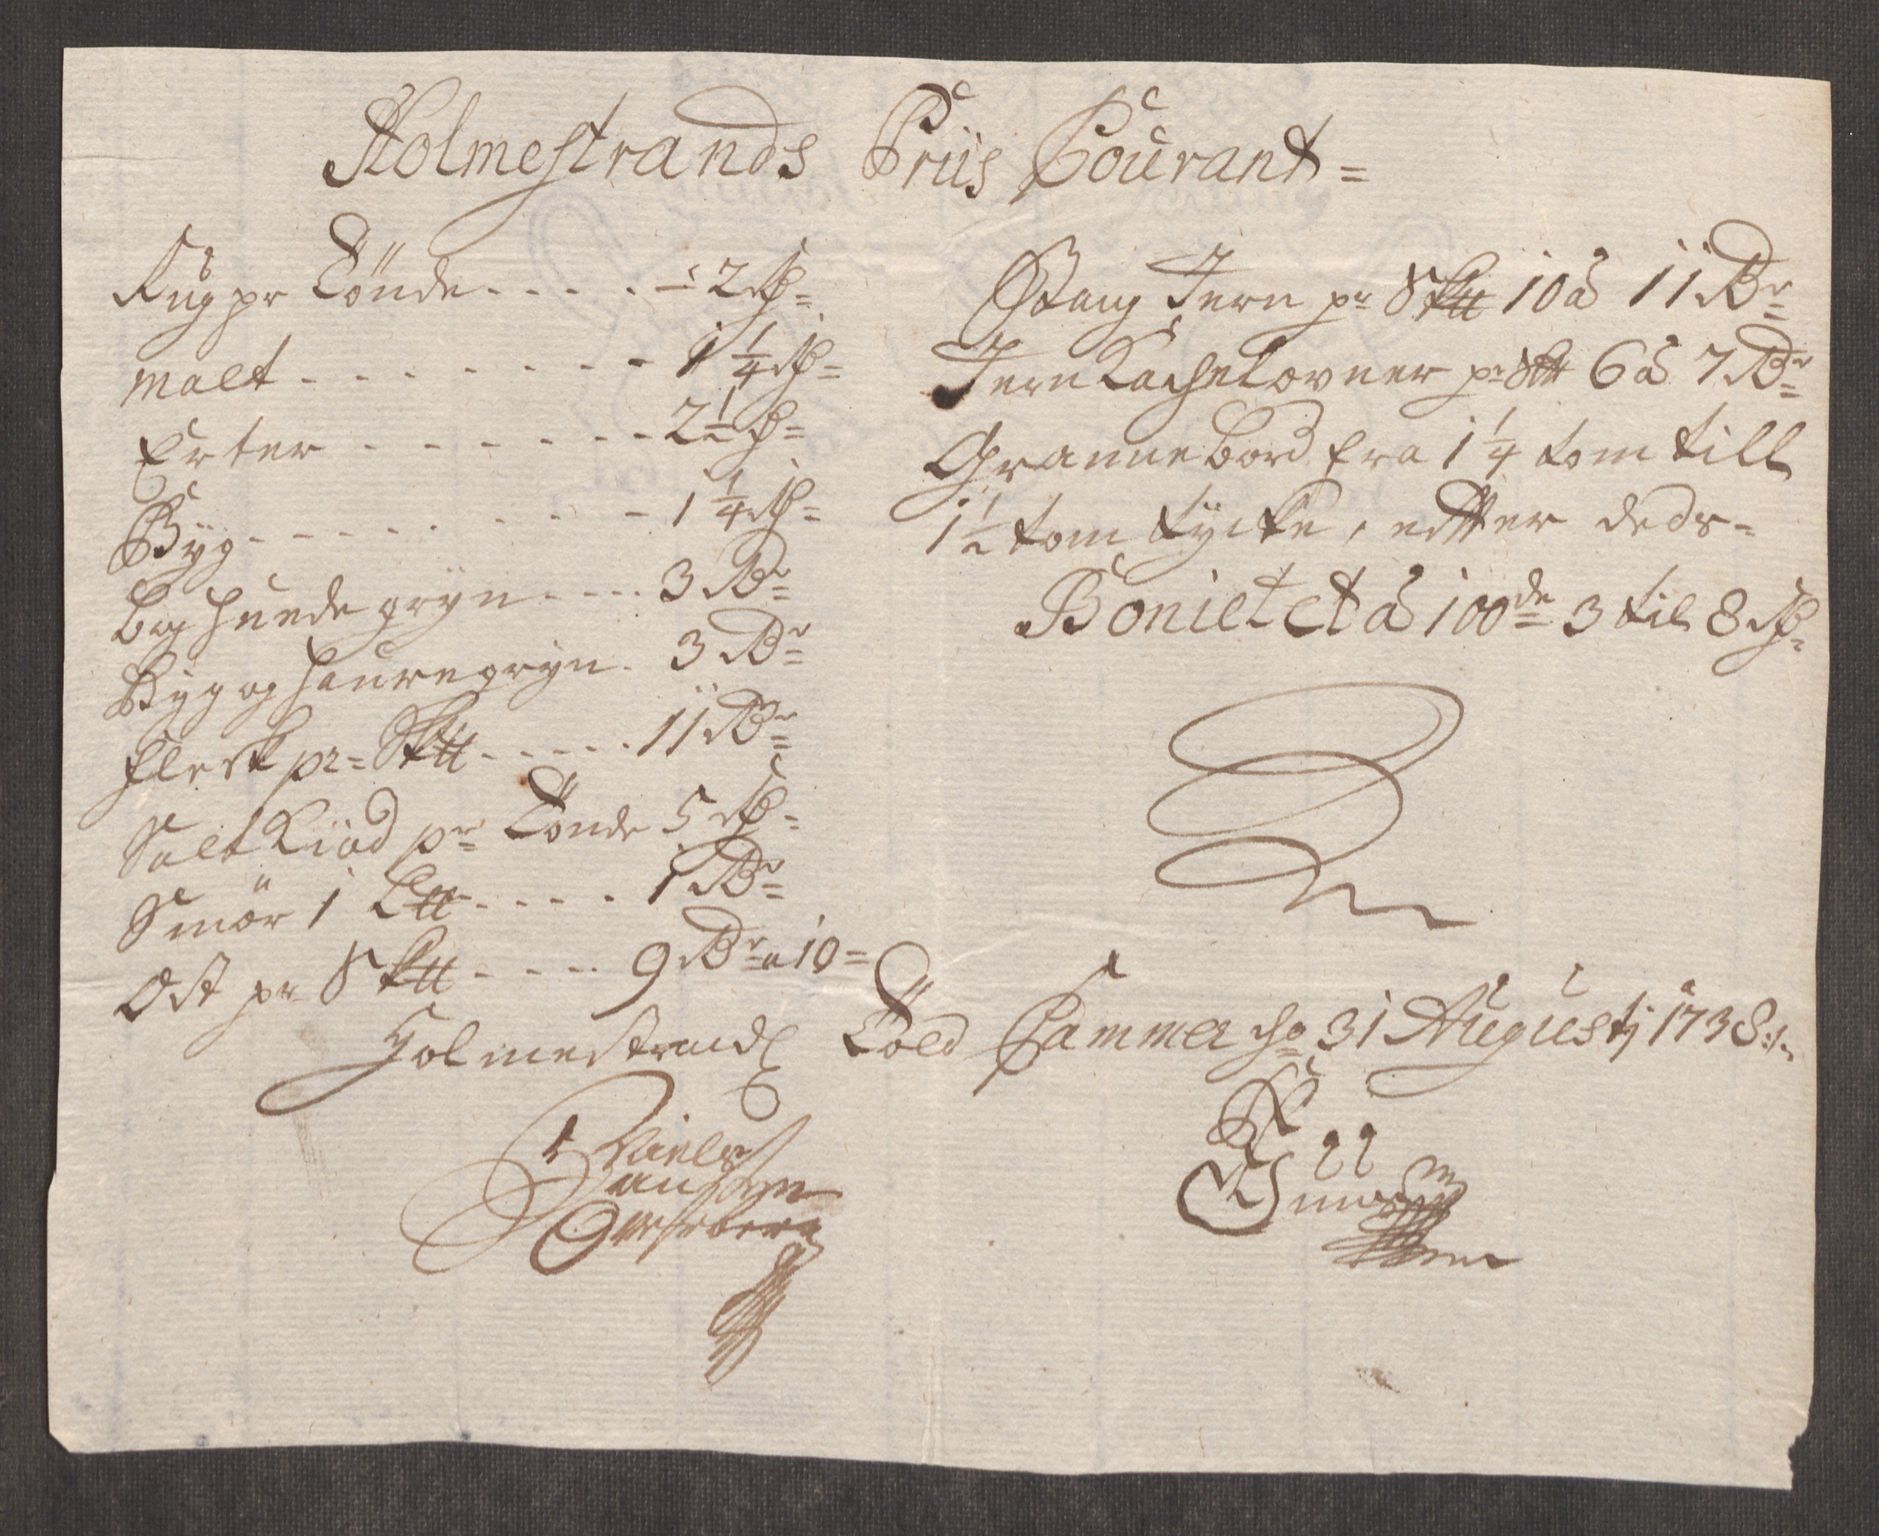 Holmestrands Priis Courant =
Rug pr Tönde . . . . . - 2 rd =
malt . . . . . . . . 1 1/4 rd =
Erter . . . . . . . 2 1/2 rd =
Byg . . . . . . . . 1 1/4 rd =
boghuede gryn . . . . 3 Rr =
Byg og haure gryn . 3 Rr =
Flesk pr = Sk℔ . . . . . . 11 Rr =
Salt Kiöd pr Tönde 5 rd =
Smör 1 L℔ . . . . . 1 Rr =
Ost pr Sk℔ . . . . . 9 Rr a 10 =
Stang Jern pr Sk℔ 10 à 11 Rr =
Jern Kachelovner pr Sk℔ 6 à 7 Rr =
Granne bord fra 1 1/4 tom till
1 1/2 tom tycke, efter deds =
Bonietet à 100de 3 til 8 rd =
Holmestrands Told Cammer d 31 Augustj 1738 :/.
Niels